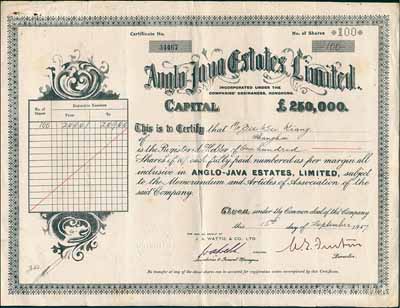 Certificate No.
34467
No. of Shares *100*
-100-
Anglo-Java Estates, Limited.
INCORPORATED UNDER THE
COMPANIES' ORDINANCES, HONGKONG.
CAPITAL £250,000.
No. of Shares
Inclusive Numbers
From To
100
This is to Certify that
Shanghai
of
is the Registered Holder of One hundred
Shares of each fully paid, numbered as per margin all
inclusive in ANGLO-JAVA ESTATES, LIMITED, subject
to the Memorandum and Articles of Association of the
said Company.
Given under the Common Seal of the Company
this 15th day of September 19
J. A. WATTIE & CO. LTD
Secretaries & General Managers
Director
No transfer of any of the above shares can be accepted for registration unless accompanied by this Certificate.